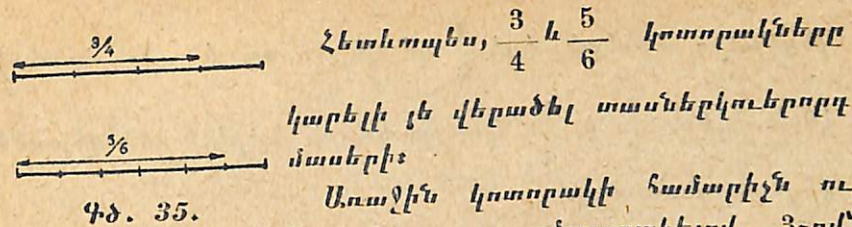 3/4
5/6
Գծ. 35.
Հետևապես, 3/4 և 5/6 կոտորակները
կարելի յե վերածել տասներկուերորդ
մասերի։
Առաջին կոտորակի համարիչն ու